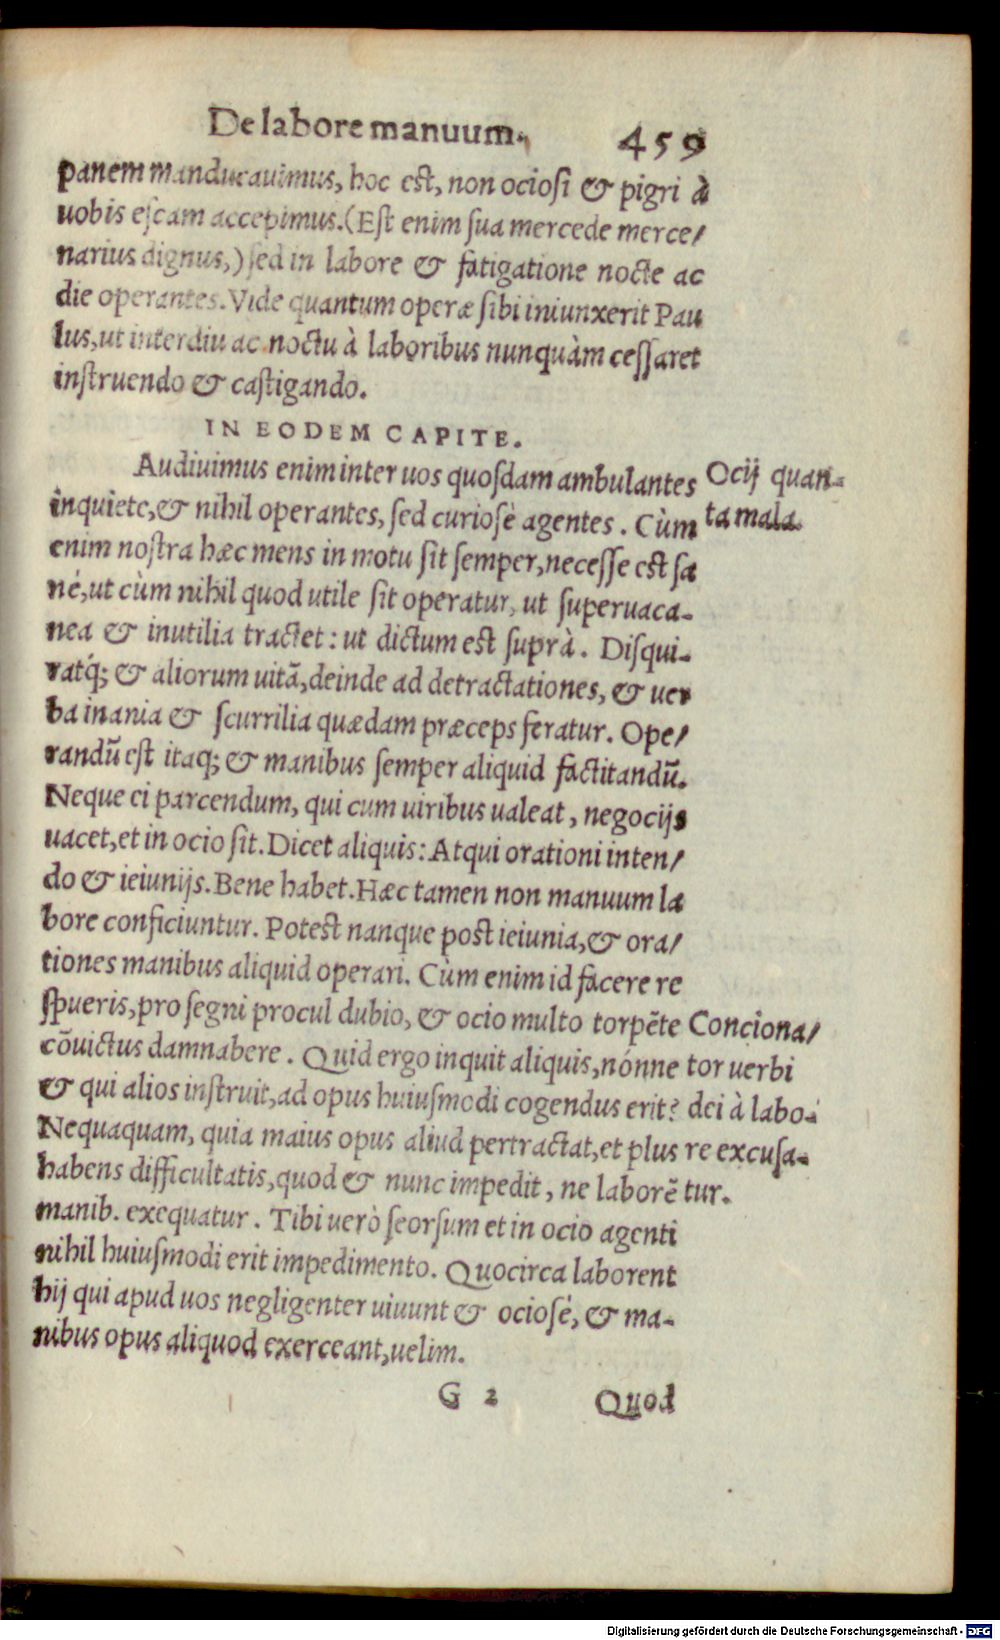 De labore manuum. 459
panem manducauimus, hoc est, non ociosi & pigri à
uobis escam accepimus. (Est enim sua mercede merce/
narius dignus,) sed in labore & fatigatione nocte ac
die operantes. Vide quantum operæ sibi iniunxerit Pau
lus, ut interdiu ac noctu à laboribus nunquàm cessaret
instruendo & castigando.
IN EODEM CAPITE.
Audiuimus enim inter uos quosdam ambulantes
inquiete, & nihil operantes, sed curiosè agentes. Cùm
enim nostra hæc mens in motu sit semper, necesse est sa
né, ut cùm nihil quod utile sit operatur, ut superuaca-
nea & inutilia tractet: ut dictum est suprà. Disqui-
ratq́; & aliorum uitã, deinde ad detractationes, & uer
ba inania & scurrilia quædam præceps feratur. Ope/
randũ est itaq; & manibus semper aliquid factitandũ.
Neque ei parcendum, qui cum uiribus ualeat, negocijs
uacet, et in ocio sit. Dicet aliquis: Atqui orationi inten/
do & ieiunijs. Bene habet. Hæc tamen non manuum la
bore conficiuntur. Potest nanque post ieiunia, & ora/
tiones manibus aliquid operari. Cùm enim id facere re
spueris, pro segni procul dubio, & ocio multo torpẽte
cõuictus damnabere. Quid ergo inquit aliquis, nónne
& qui alios instruit, ad opus huiusmodi cogendus erit?
Nequaquam, quia maius opus aliud pertractat, et plus
habens difficultatis, quod & nunc impedit, ne laborẽ
manib. exequatur. Tibi uerò seorsum et in ocio agenti
nihil huiusmodi erit impedimento. Quocirca laborent
hij qui apud uos negligenter uiuunt & ociosè, & ma-
nibus opus aliquod exerceant, uelim.
G 2 Quod
Ocij quan-
ta mala.
Conciona/
tor uerbi
dei à labo-
re excusa-
tur.
Digitalisierung gefördert durch die Deutsche Forschungsgemeinschaft - DFG